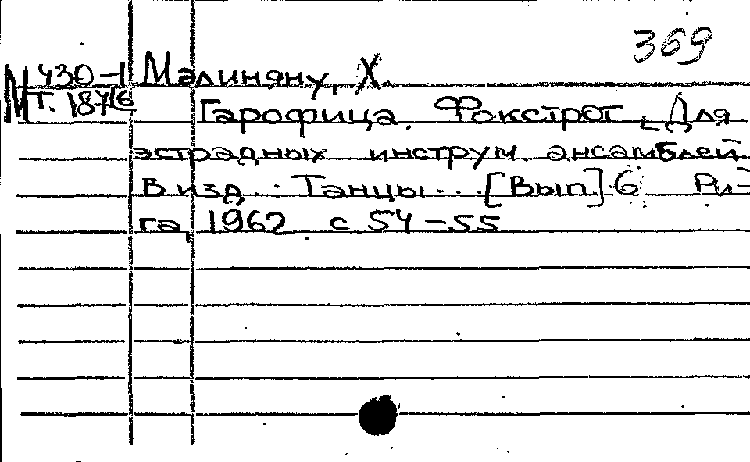 369
М 430-1 Малиняну, Х.
Т. 187/6 Гарофица. Фокстрот. [Для
эстрадных инструм. ансамблей
В изд.: Танцы... [Вып] 6 Ри-
га, 1962 с 54-55